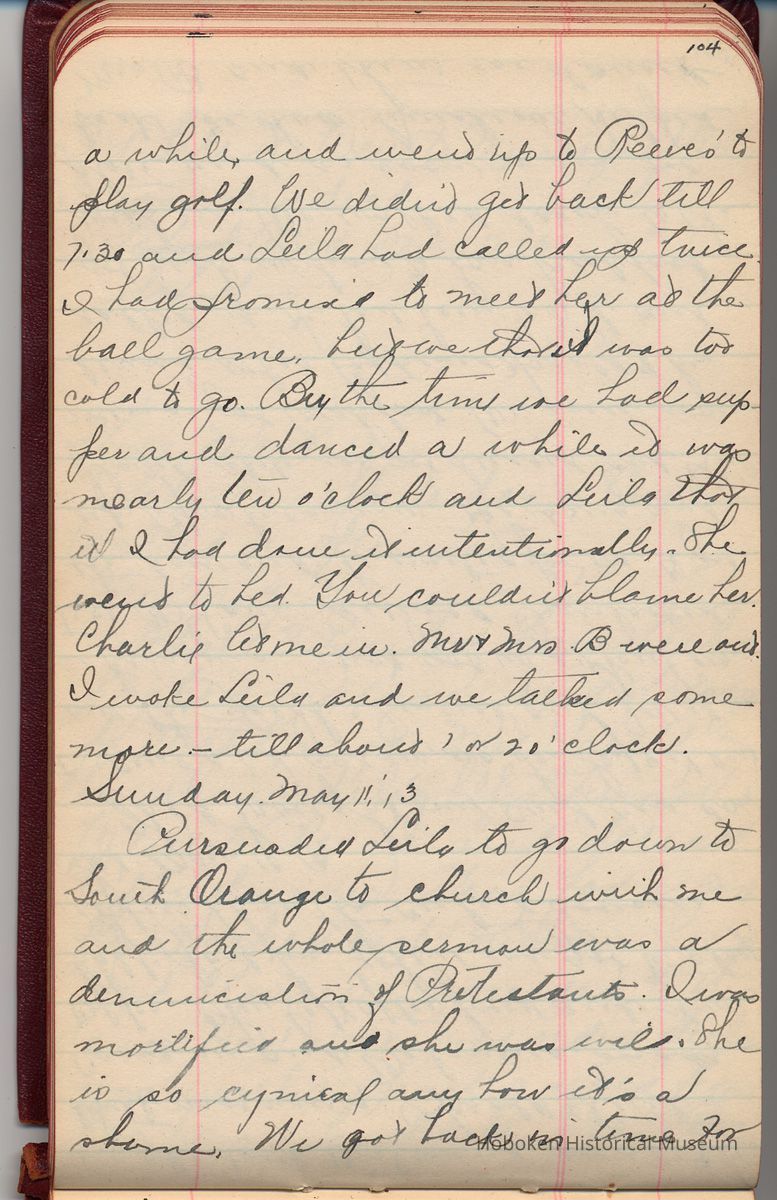 104
a while, and went up to Reeves' to
play golf. We didn't get back till
7:30 and Leila had called up twice.
I had promised to meet her at the
ball game, but we thot it was too
cold to go. By the time we had sup-
per and danced a while it was
nearly ten o'clock and Leila thot
I had done it intentionally. She
went to bed. You couldn't blame her.
Charlie let me in. Mr & Mrs B were out.
I woke Leila and we talked some
more. – till about 1 or 2 o'clock.
Sunday. May 11, '13
Pursuaded Leila to go down to
South Orange to church with me
and the whole sermon was a
denunciation of Protestants. I was
mortified and she was wild. She
is so cynical any how it's a
shame. We got back in time for
Hoboken Historical Museum